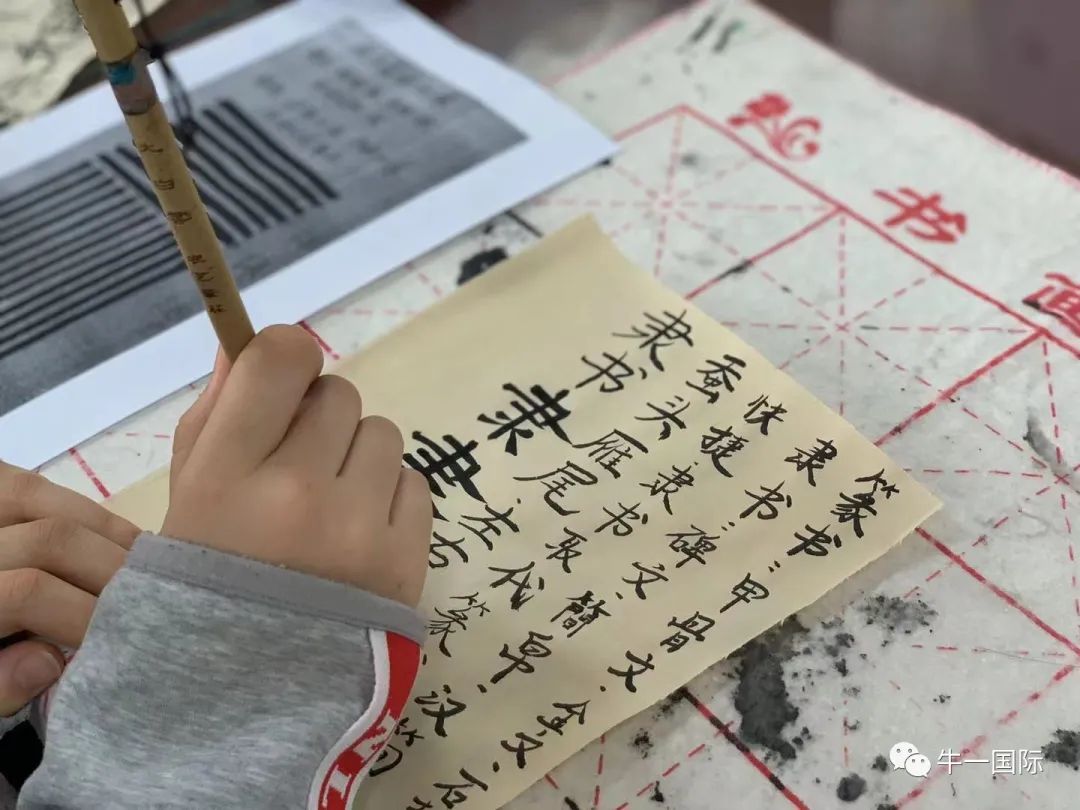 篆书:甲骨文.金文.石
隶书:碑文.簡帛.汉简
快捷.隶书取代篆.
蚕头雁尾.左右
隶书
隶隶
书
牛一国际